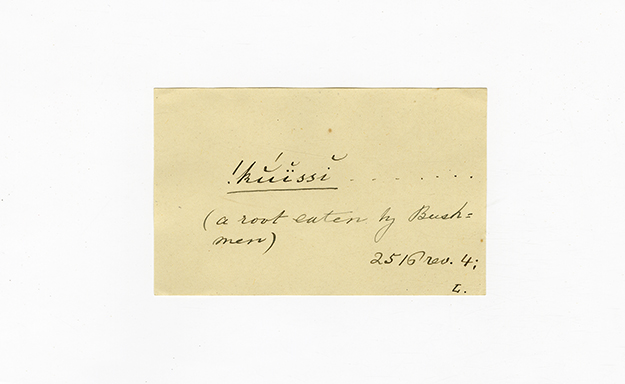 !kúïssĭ - - - - - - -
(a root eaten by Bush=
men)
2516 rev. 4;
L.